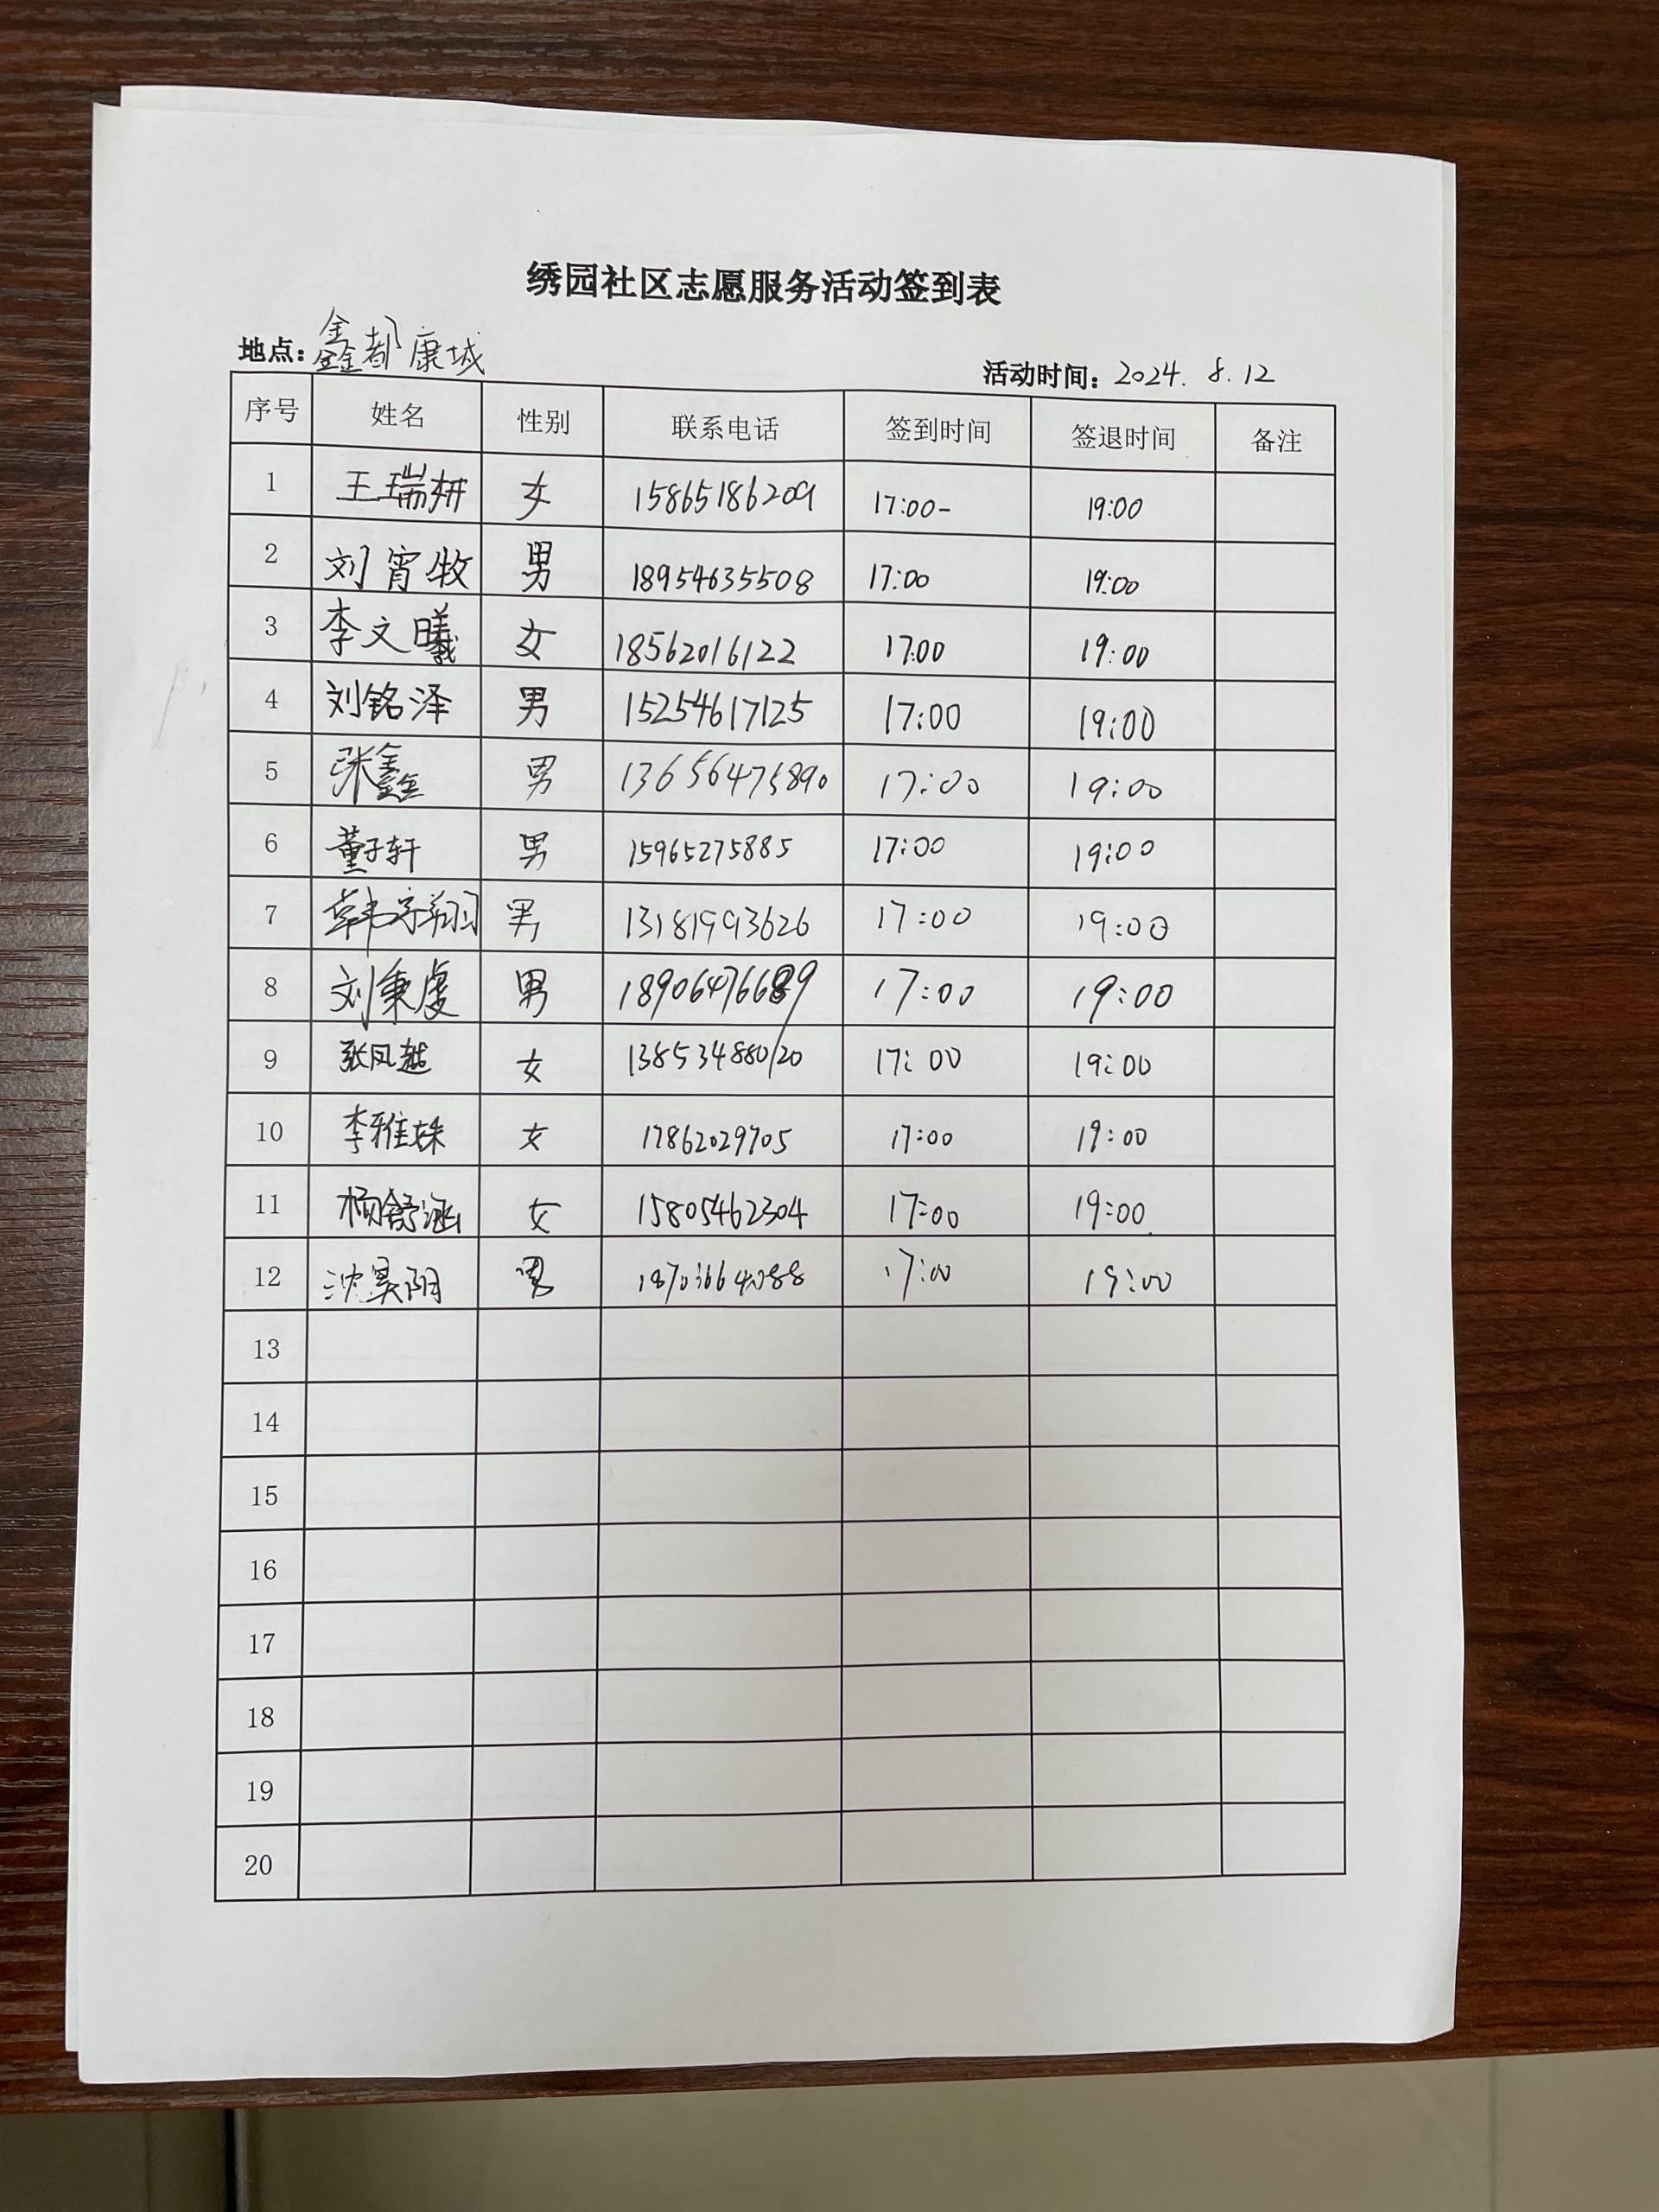 绣园社区志愿服务活动签到表
地点：鑫都康城 活动时间：2024.8.12
序号 姓名 性别 联系电话 签到时间 签退时间 备注
1 王瑞妍 女 15865186209 17:00- 19:00
2 刘宵牧 男 18954635508 17:00 19:00
3 李文曦 女 18562016122 17:00 19:00
4 刘铭泽 男 15254617125 17:00 19:00
5 张鑫 男 13656475890 17:00 19:00
6 董子轩 男 15965275885 17:00 19:00
7 韩宇翔 男 13181993626 17:00 19:00
8 刘秉虔 男 18906476689 17:00 19:00
9 张凤越 女 17:00 19:00
10 李雅姝 女 17862029705 17:00 19:00
11 杨舒涵 女 15805462304 17:00 19:00
12 沈昊阳 男 17:00 19:00
13
14
15
16
17
18
19
20